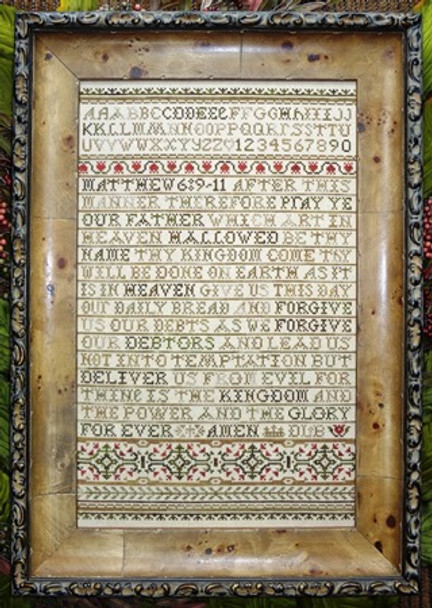 AAABBCCDDEEEFFGGHHIIJJ
KKLLMMNNOOPPQQRRSSTTU
UVVWWXXYYZZ1234567890
MATTHEW 6:9-11 AFTER THIS
MANNER THEREFORE PRAY YE
OUR FATHER WHICH ART IN
HEAVEN HALLOWED BE THY
NAME THY KINGDOM COME THY
WILL BE DONE ON EARTH AS IT
IS IN HEAVEN GIVE US THIS DAY
OUR DAILY BREAD AND FORGIVE
US OUR DEBTS AS WE FORGIVE
OUR DEBTORS AND LEAD US
NOT INTO TEMPTATION BUT
DELIVER US FROM EVIL FOR
THINE IS THE KINGDOM AND
THE POWER AND THE GLORY
FOR EVER AMEN DUB